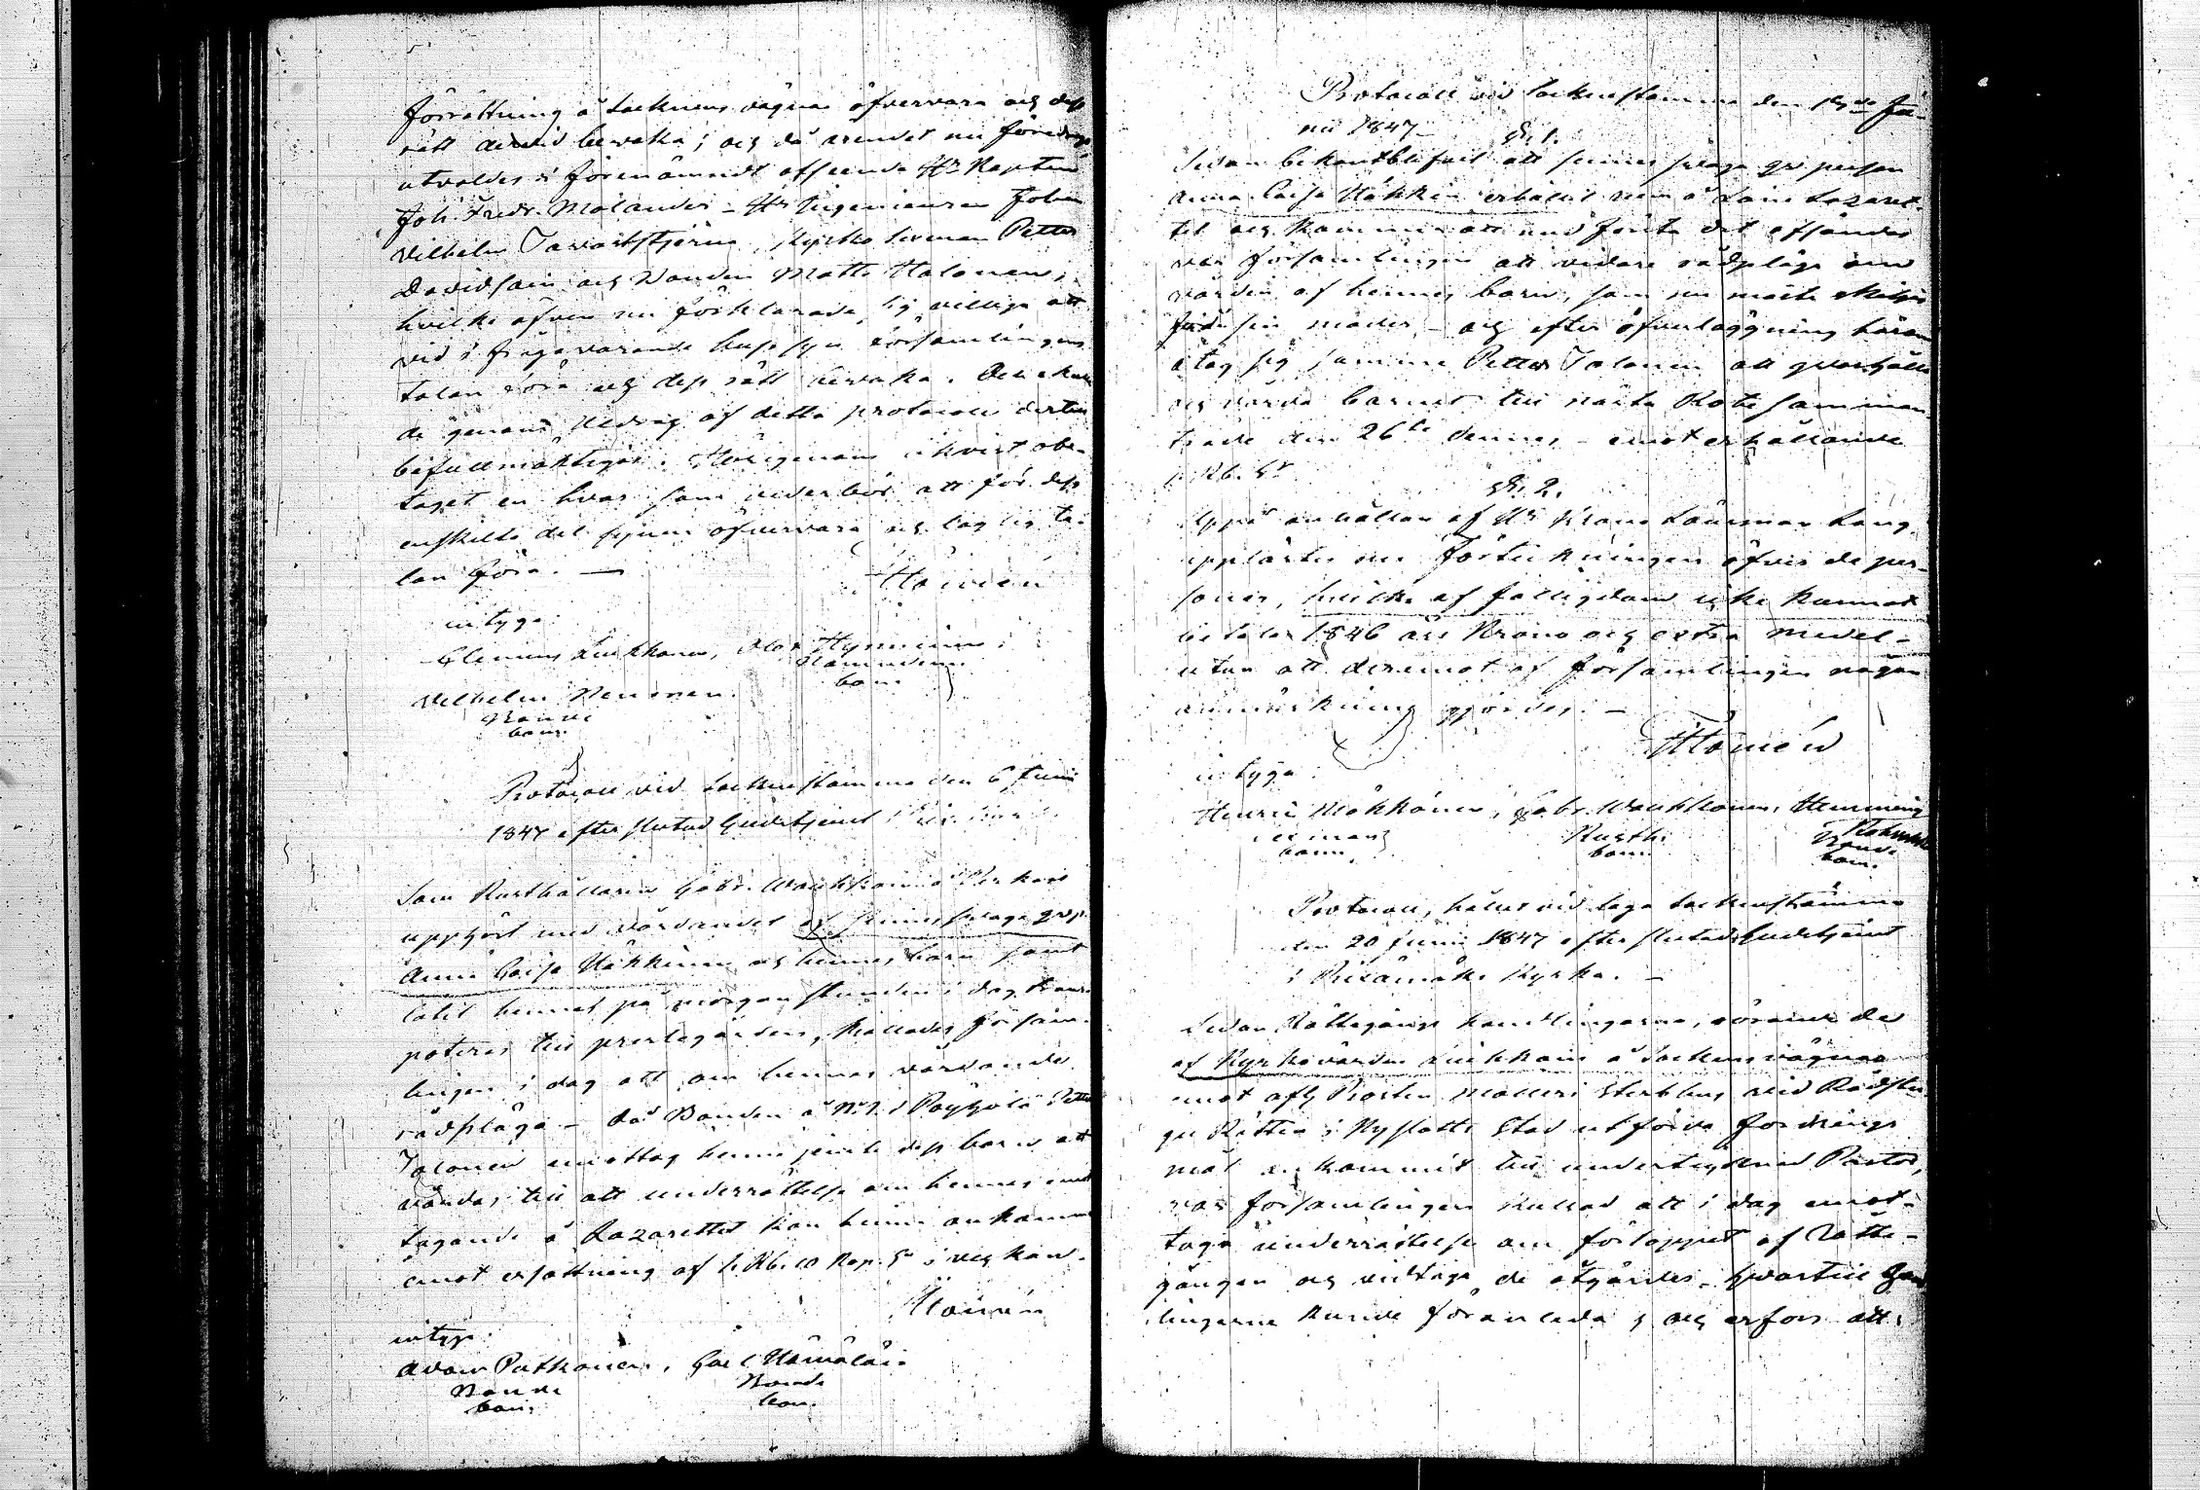 förrättning å Socknens vägnar öfvervara och dess
rätt dervid bevaka; och då ärendet nu föredrogs,
utvaldes i förenämndt afseende Hr Kapten
Joh. Fredr. Molander – Hr Ingenieuren Johan
Vilhelm Tavaststjerna, Kyrko Herman Petter
Davidsain och Bonden Matts Halonen,
hvilka äfven nu förklarade sig villiga att
vid i fråga varande husesyn församlingens
talan föra och dess rätt bevaka. Och skulle
de genom utdrag af detta protocoll dertill
befullmäktigas. Hvarigenom ihvist obe-
taget en hvar som vederbör att för dess
enskilta del synen öfvervara och laglig ta-
lan föra. —
Homén
intyga
Clemens Luukkonen, Olof Hyvärinen;
bom.
Vilhelm Neuvonen.
Bonde
bom.
Protocoll vid Sockenstämma den 6 Juni
1847 efter slutad Gudstjenst
Som Rusthållaren Gabr. Waukkonen å
upphört med vårdandet af sinnessvaga qvp.
Anna Caisa Häkkinen och hennes barn samt
låtit hennes på morgonstunden i dag trans-
porteras till prestegården, kallades försam-
lingen i dag att om hennes vårdande
rådpläga – då Bonden å No 2 Pöyhölä Petter
Tolonen emottog henne jemte dess barn att
vårdas till att underrättelse om hennes emot
tagande å Lazarettet kan hinna ankomma
emot ersättning af 1 Rb. 10 Kop. Sr i veckan.
Homén
intyga:
Adam Putkonen, Carl Hämäläin.
Bonde Bonde
bom. bom.
Protocoll vid Sockenstämma den 13de Ju-
nii 1847 –
§. 1.
Sedan bekantblifvit att sinnes svaga qvpersonen
Anna Caisa Häkkinen erhållit rum å Läns Lazaret-
tet och kommer att med första dit afsändas
var församlingen att vidare rådpläga om
vården af hennes barn, som nu måste skiljas
från sin moder – och efter öfverläggning härom
åtog sig samme Petter Tolonen att qvarhålla
och vårda barnet till nästa Rote samman
träde den 26te dennes, – emot erhållande
1 Rb. Sr
§. 2.
Uppå anhållan af Hr Krono Länsman Lang
upplästes nu Förteckningen öfver de per-
soner, hvilka af fattigdom icke kunnat
betala 1846 års Krono och extra medel –
utan att deremot af församlingen någon
anmärkning gjordes. –
Homén
intyga:
Henric Mökkönen, Gabr. Waukkonen, Henning
Rusth.
bom. bom. Bonde
bom.
Protocoll, hållet vid laga Sockenstämma
den 20 Junii 1847 efter slutad Gudstjenst
i Kyrka. –
Sedan Rättegångs handlingarna, rörande de
af Kyrkovärden Luukkoin å Sockens vägnar
emot aflg Prosten Mollers Sterbhus vid Rådstu-
gu Rätten i Nyslotts Stad utförda fordrings
mål ankommit till undertecknad Pastor,
var församlingen kallad att i dag emot-
taga underrättelse om förloppet af Rätte-
gången och vidtaga de åtgärder, hvartill han
lingarne kunde föranleda, och erfors att